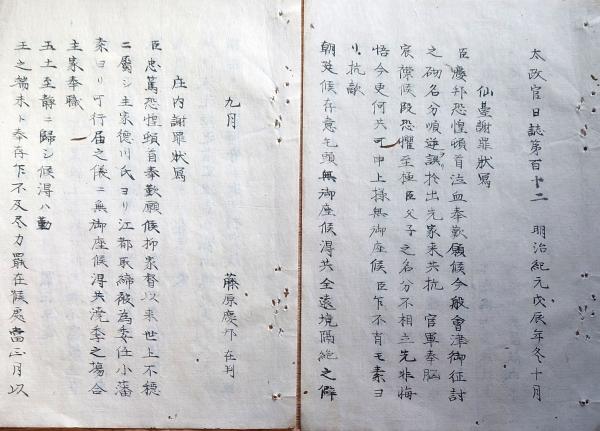 太政官日誌第百十二　明治紀元戊辰年冬十月
仙臺謝罪状寫
臣慶邦恐惶頓首泣血奉歎願候今般會津御征討
之砌名分順逆誤於出先家来共抗　官軍奉脳
宸襟候段恐懼至極臣父子之名分不相立先非悔
悟今更何共可申上様無御座候臣乍不肖モ素ヨ
リ抗敵
朝廷候存意毛頭無御座候得共全遠境隔絶之僻
九月　藤原慶邦　在判
庄内謝罪状寫
臣忠篤恐惶頓首奉歎願候抑家督以来世上不穏
ニ属シ主家徳川氏ヨリ江都取締被為委任小藩
素ヨリ可行届之様ニ無御座候得共渡季之場合
主家奉職
五土至静ニ歸シ候得ハ勤
王之端末ト奉存乍不及尽力罷在候處當三月以